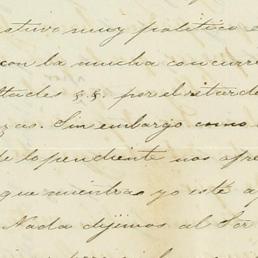 estuvo muy político e
con la mucha concurre
ltades &.&. por el retard
zas. Sin embargo como
te lo pendiente nos apre
que mientras yo esté a
Nada dijimos al Sor